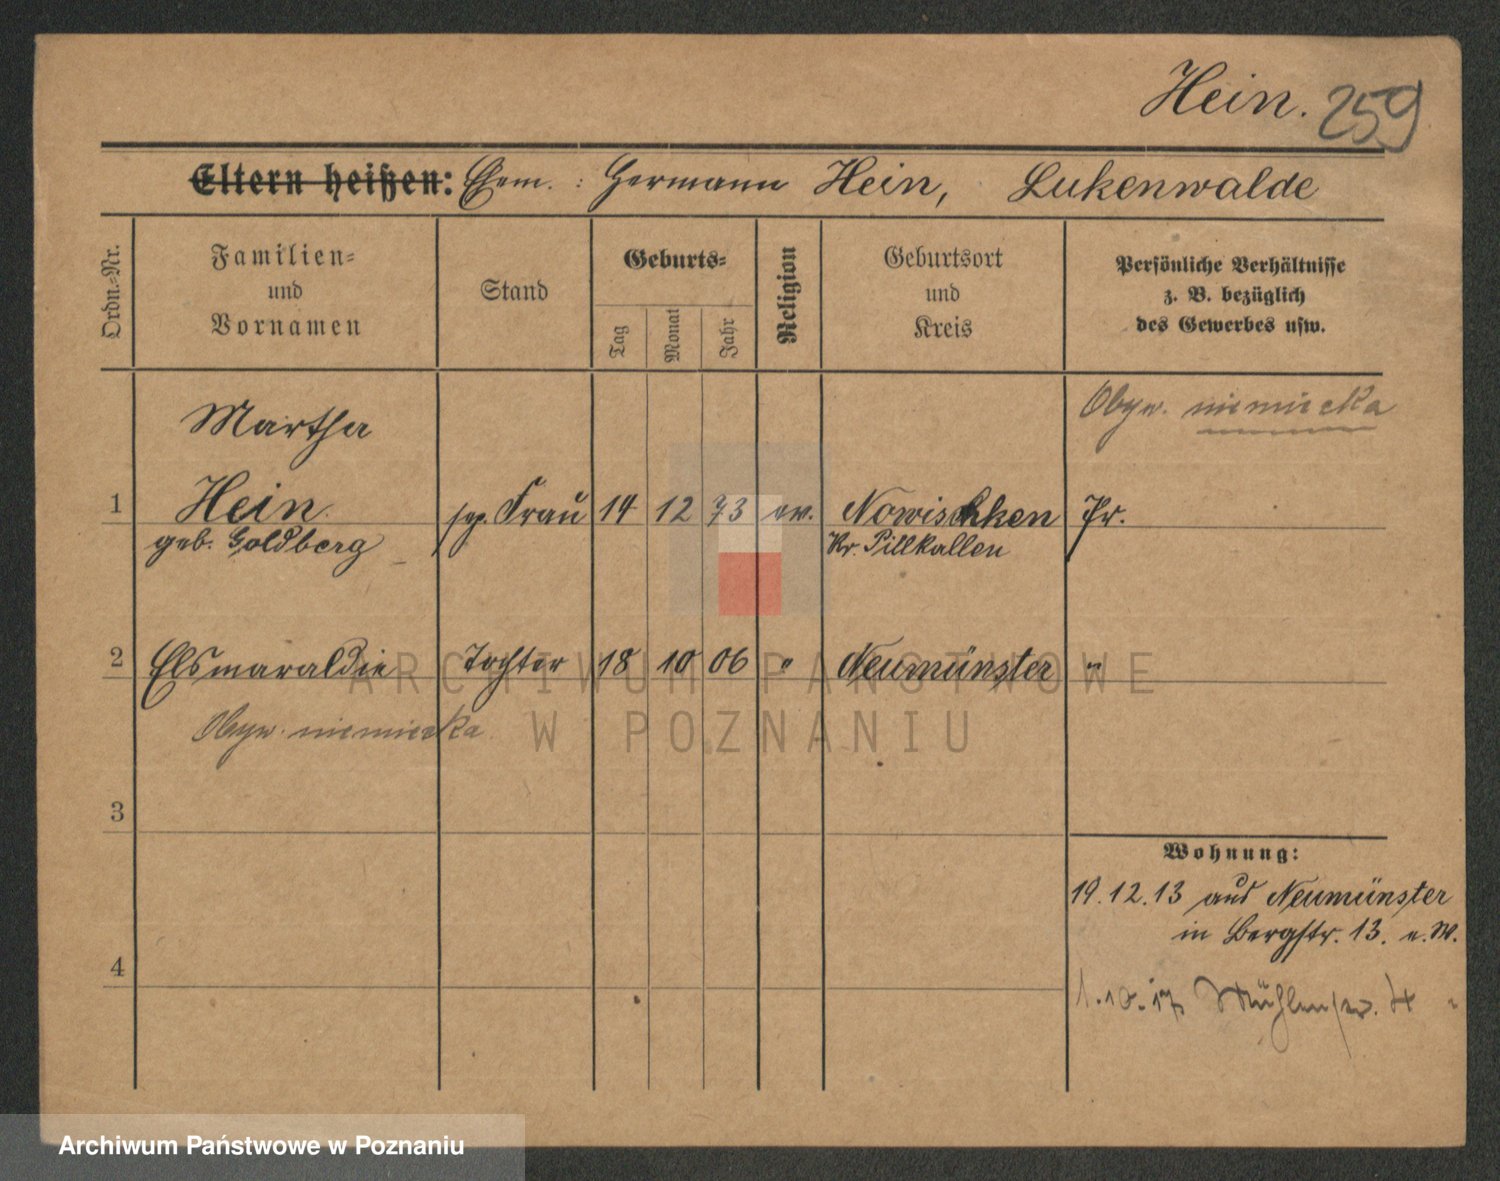 Hein. 259
Eltern heißen: Ehem. : Hermann Hein, Lukenwalde
Ordn.-Nr.
Familien-
und
Vornamen
Stand
Geburts-
Tag
Monat
Jahr
Religion
Geburtsort
und
Kreis
Persönliche Verhältnisse
z. B. bezüglich
des Gewerbes usw.
Obyw. niemiecka
Martha
1 Hein. Frau 14 12 73 ev. Nowischken Pr.
geb. Goldberg Kr. Pillkallen
2 Elsmaraldie Tochter 18 10 06 " Neumünster "
Obyw. niemiecka
3
Wohnung:
19.12.13 aus Neumünster
in Bergstr. 13. e. W.
4
1.10.17 Mühlenstr. 4 "
ARCHIWUM PAŃSTWOWE
W POZNANIU
Archiwum Państwowe w Poznaniu